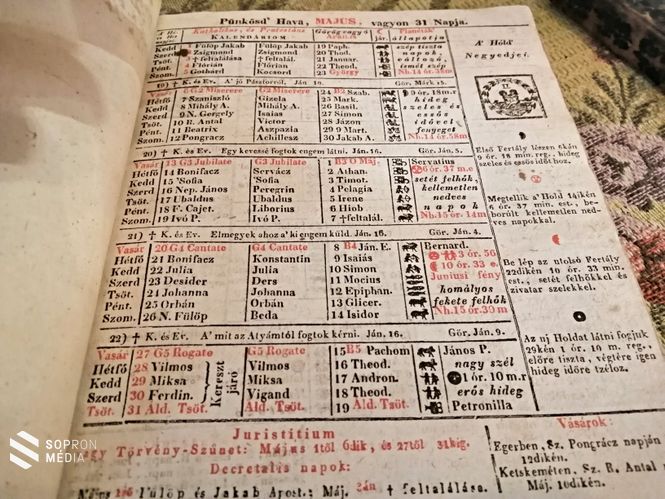 Pünkösd' Hava, MÁJUS, vagyon 31 Napja.
Katholikus, és Protestáns KALENDÁRIOM
Görögvagy Arias. n.
jár.
Planéták' állapotja
A' Hóld' Negyedjei.
Kedd 1 Fülöp Jakab Fülöp Jakab 19 Paph. szép tiszta
Szerd 2 Zsigmond Zsigmond 20 Theod. napok
Tsöt. 3 † feltalálás † feltalál. 21 Januar. változó,
Pént. 4 Flórian Flórian 22 Theod. ismét szép
Szom. 5 Gothárd Kocsord 23 György Nb. 14 ór. 38m
19) † K. és Ev. A' jó Pásztorról. Ján. 10. Gör. Márk 15.
6 G2 Miserere G2 Miserere 24 B2 Szab. 9 ór. 18m.r
Hétfő 7 Szaniszló Gizela 25 Mark. hideg
Kedd 8 Mihály A. Mihály A. 26 Basil. szeles és
Szerd 9 N. Gergely Isaias 27 Simon essős
Tsöt. 10 R. Antal Victor 28 Jázon időtel
Pént. 11 Beatrix Aszpazia 29 9 Mart. fenyeget
Szom. 12 Pongrácz Achillesz 30 Jakab A. Nb. 14ór58m
Első Fertály lészen 6kán
9 ór. 18 min. reg., hideg
szeles és essős időt hoz.
20) † K. és Ev. Egy kevessé fogtok engem látni. Ján. 16. Gör. Ján. 5.
Vasár 13 G3 Jubilate G3 Jubilate 1 B3 O Máj. Servatius
Hétfő 14 Bonifacz Servácz 2 Athan. 6 ór. 37 m.e
Kedd 15 'Sofia 'Sofia 3 Timot. setét felhők,
Szerd 16 Nep. János Peregrin 4 Pelagia kellemetlen
Tsöt. 17 Ubaldus Ubaldus 5 Irene nedves
Pént. 18 F. Cajet. Liborius 6 Hiob napok
Szom. 19 Ivó P. Ivó P. 7 † feltalál. Nb. 15 ór. 14m
Megtellik a' Hold 13iken
6 ór. 37 min. est., be-
borúlt kellemetlen ned-
ves napokkal.
21) † K. és Ev. Elmegyek ahoz a' ki engem küld. Ján. 16. Gör. Ján. 4.
Vasár 20 G4 Cantate G4 Cantate 8 B4 Ján. E. Bernard.
Hétfő 21 Bonifacz Konstantin 9 Isaiás 3 ór. 56
Kedd 22 Julia Julia 10 Simon 10 ór. 33 e.
Szerd 23 Desider Ders 11 Mocius Juniusi fény
Tsöt. 24 Johanna Johanna 12 Epiphan. homályos
Pént. 25 Orbán Orbán 13 Glicer. fekete felhők
Szom. 26 N. Fülöp Beda 14 Isidor Nb. 15ór. 39 m
Bé lép az utolsó Fertály
22dikén 10 ór. 33 min.
est., setét felhőkkel és
zivatar szelekkel.
22) † K. és Ev. A' mit az Atyámtól fogtok kérni. Ján. 16. Gör. Ján. 9.
Vasár 27 G5 Rogate G5 Rogate 15 B5 Pachom János P.
Hétfő 28 Vilmos Vilmos 16 Theod. nagy szél
Kedd 29 Miksa Miksa 17 Andron. 1 ór. 10 m.r
Szerd 30 Ferdin. Vigand 18 Theod. erős hideg
Tsöt. 31 Áld. Tsöt. Áld. Tsöt. 19 Áld. Tsöt. Petronilla
Kereszt járó
Az uj Holdat látni fogjuk
29kén 1 ór. 10 m. reggel.,
előre tiszta, végtére igen
hideg időre tzéloz.
Juristitium
vagy Törvény-Szünet: Május 1től 6dik, és 27től 31kig.
Decretalis napok:
Május 1ső Fülöp és Jakab Apost.: Máj. 3án † feltalálása.
Vásárok:
Egerben, Sz. Pongrácz napján
12dikén.
Ketskeméten, Sz. R. Antal
Máj. 10dikén.
SOPRON
MÉDIA